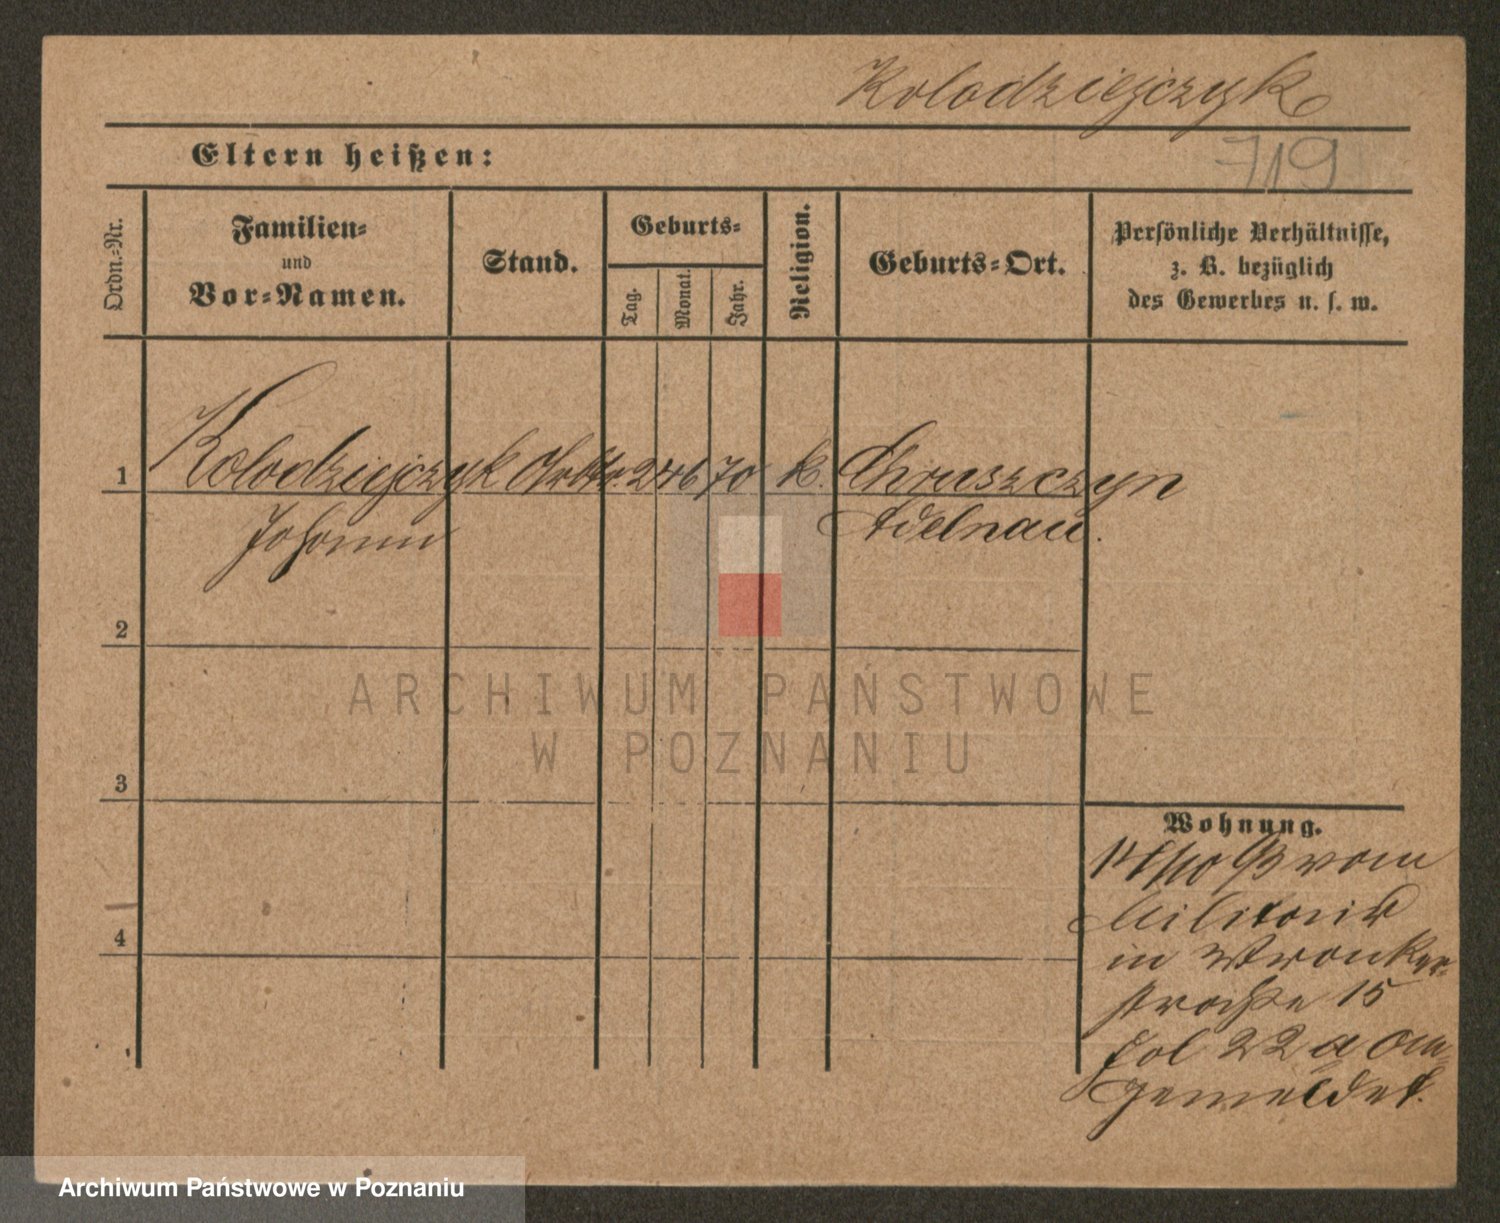 Kolodziejczyk
719
Eltern heißen:
Ordn.-Nr.
Familien-
und
Vor-Namen.
Stand.
Geburts-
Tag.
Monat.
Jahr.
Religion.
Geburts-Ort.
Persönliche Verhältnisse,
z. B. bezüglich
des Gewerbes u. s. w.
1 Kolodziejczyk 24 6 70 k. Chruszczyn
Johann Adelnau.
2
ARCHIWUM PAŃSTWOWE
W POZNANIU
3
Wohnung.
93 vom
Militair
4
in Wronker-
straße 15
Fol 22 a an-
gemeldet.
Archiwum Państwowe w Poznaniu